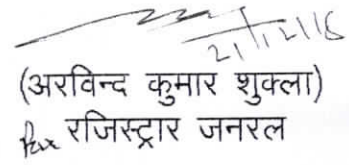 21/12/18
(अरविन्द कुमार शुक्ला)
रजिस्ट्रार जनरल